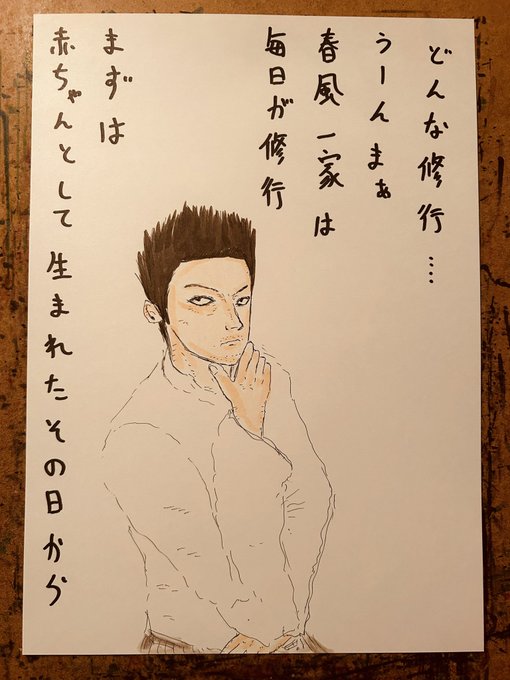 どんな修行‥‥
うーんまぁ
春風一家は
毎日が修行
まずは
赤ちゃんとして生まれたその日から